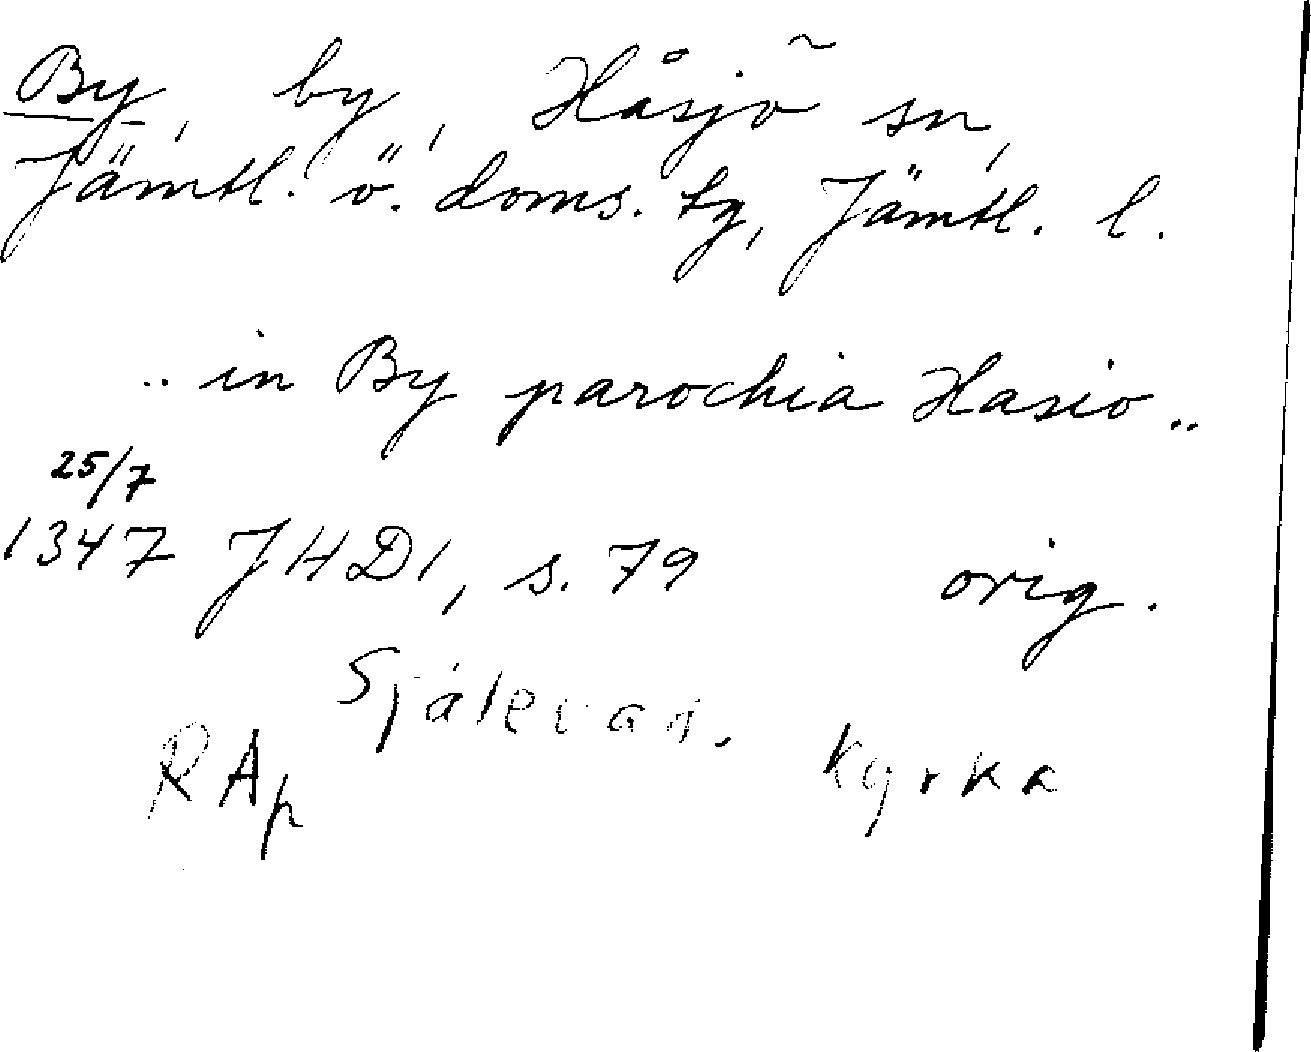 By, by, Håsjö sn,
Jämtl. ö. doms. tg, Jämtl. l.
.. in By parochia Hasio ..
25/7
1347 JHD1, s. 79 orig.
Själevad. kyrka
RAp